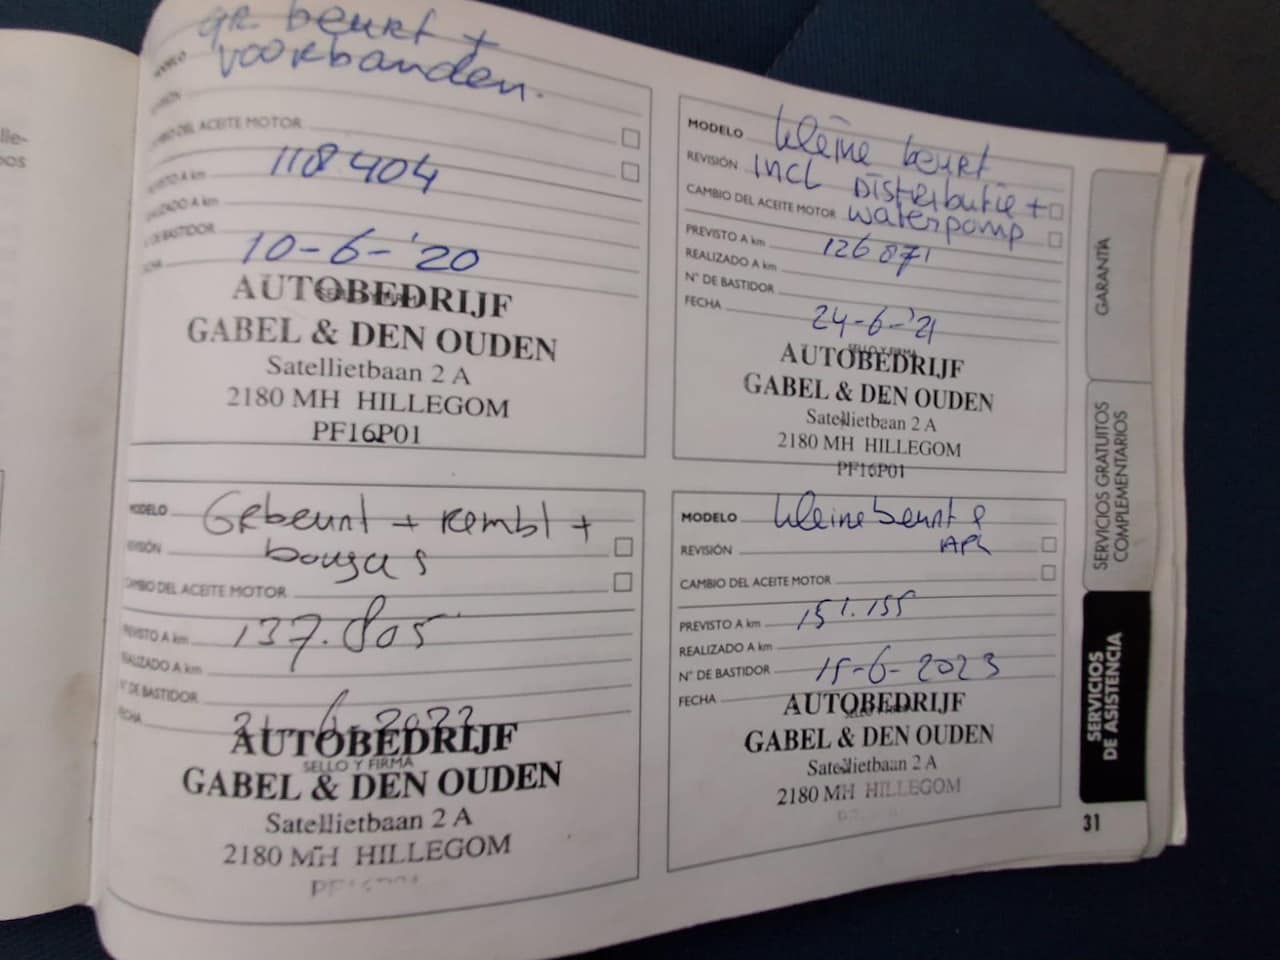 lle-
pos
gr. beurt +
MODELO voorbanden.
CAMBIO DEL ACEITE MOTOR
PREVISTO A km 118404
REALIZADO A km
N° DE BASTIDOR
FECHA 10-6-'20
SELLO Y FIRMA
AUTOBEDRIJF
GABEL & DEN OUDEN
Satellietbaan 2 A
2180 MH HILLEGOM
PF16P01
MODELO kleine beurt
REVISIÓN incl Distributie +
CAMBIO DEL ACEITE MOTOR waterpomp
PREVISTO A km 126871
REALIZADO A km
N° DE BASTIDOR
FECHA 24-6-'21
SELLO Y FIRMA
AUTOBEDRIJF
GABEL & DEN OUDEN
Satellietbaan 2 A
2180 MH HILLEGOM
PF16P01
MODELO Gr beurt + rembl +
REVISIÓN bougies
CAMBIO DEL ACEITE MOTOR
PREVISTO A km 137.805
REALIZADO A km
N° DE BASTIDOR
FECHA 6-2022
AUTOBEDRIJF
SELLO Y FIRMA
GABEL & DEN OUDEN
Satellietbaan 2 A
2180 MH HILLEGOM
PF16P01
MODELO kleine beurt &
REVISIÓN APK
CAMBIO DEL ACEITE MOTOR
PREVISTO A km 151.155
REALIZADO A km
N° DE BASTIDOR 15-6-2023
FECHA
AUTOBEDRIJF
SELLO Y FIRMA
GABEL & DEN OUDEN
Satellietbaan 2 A
2180 MH HILLEGOM
GARANTÍA
SERVICIOS GRATUITOS
COMPLEMENTARIOS
SERVICIOS
DE ASISTENCIA
31